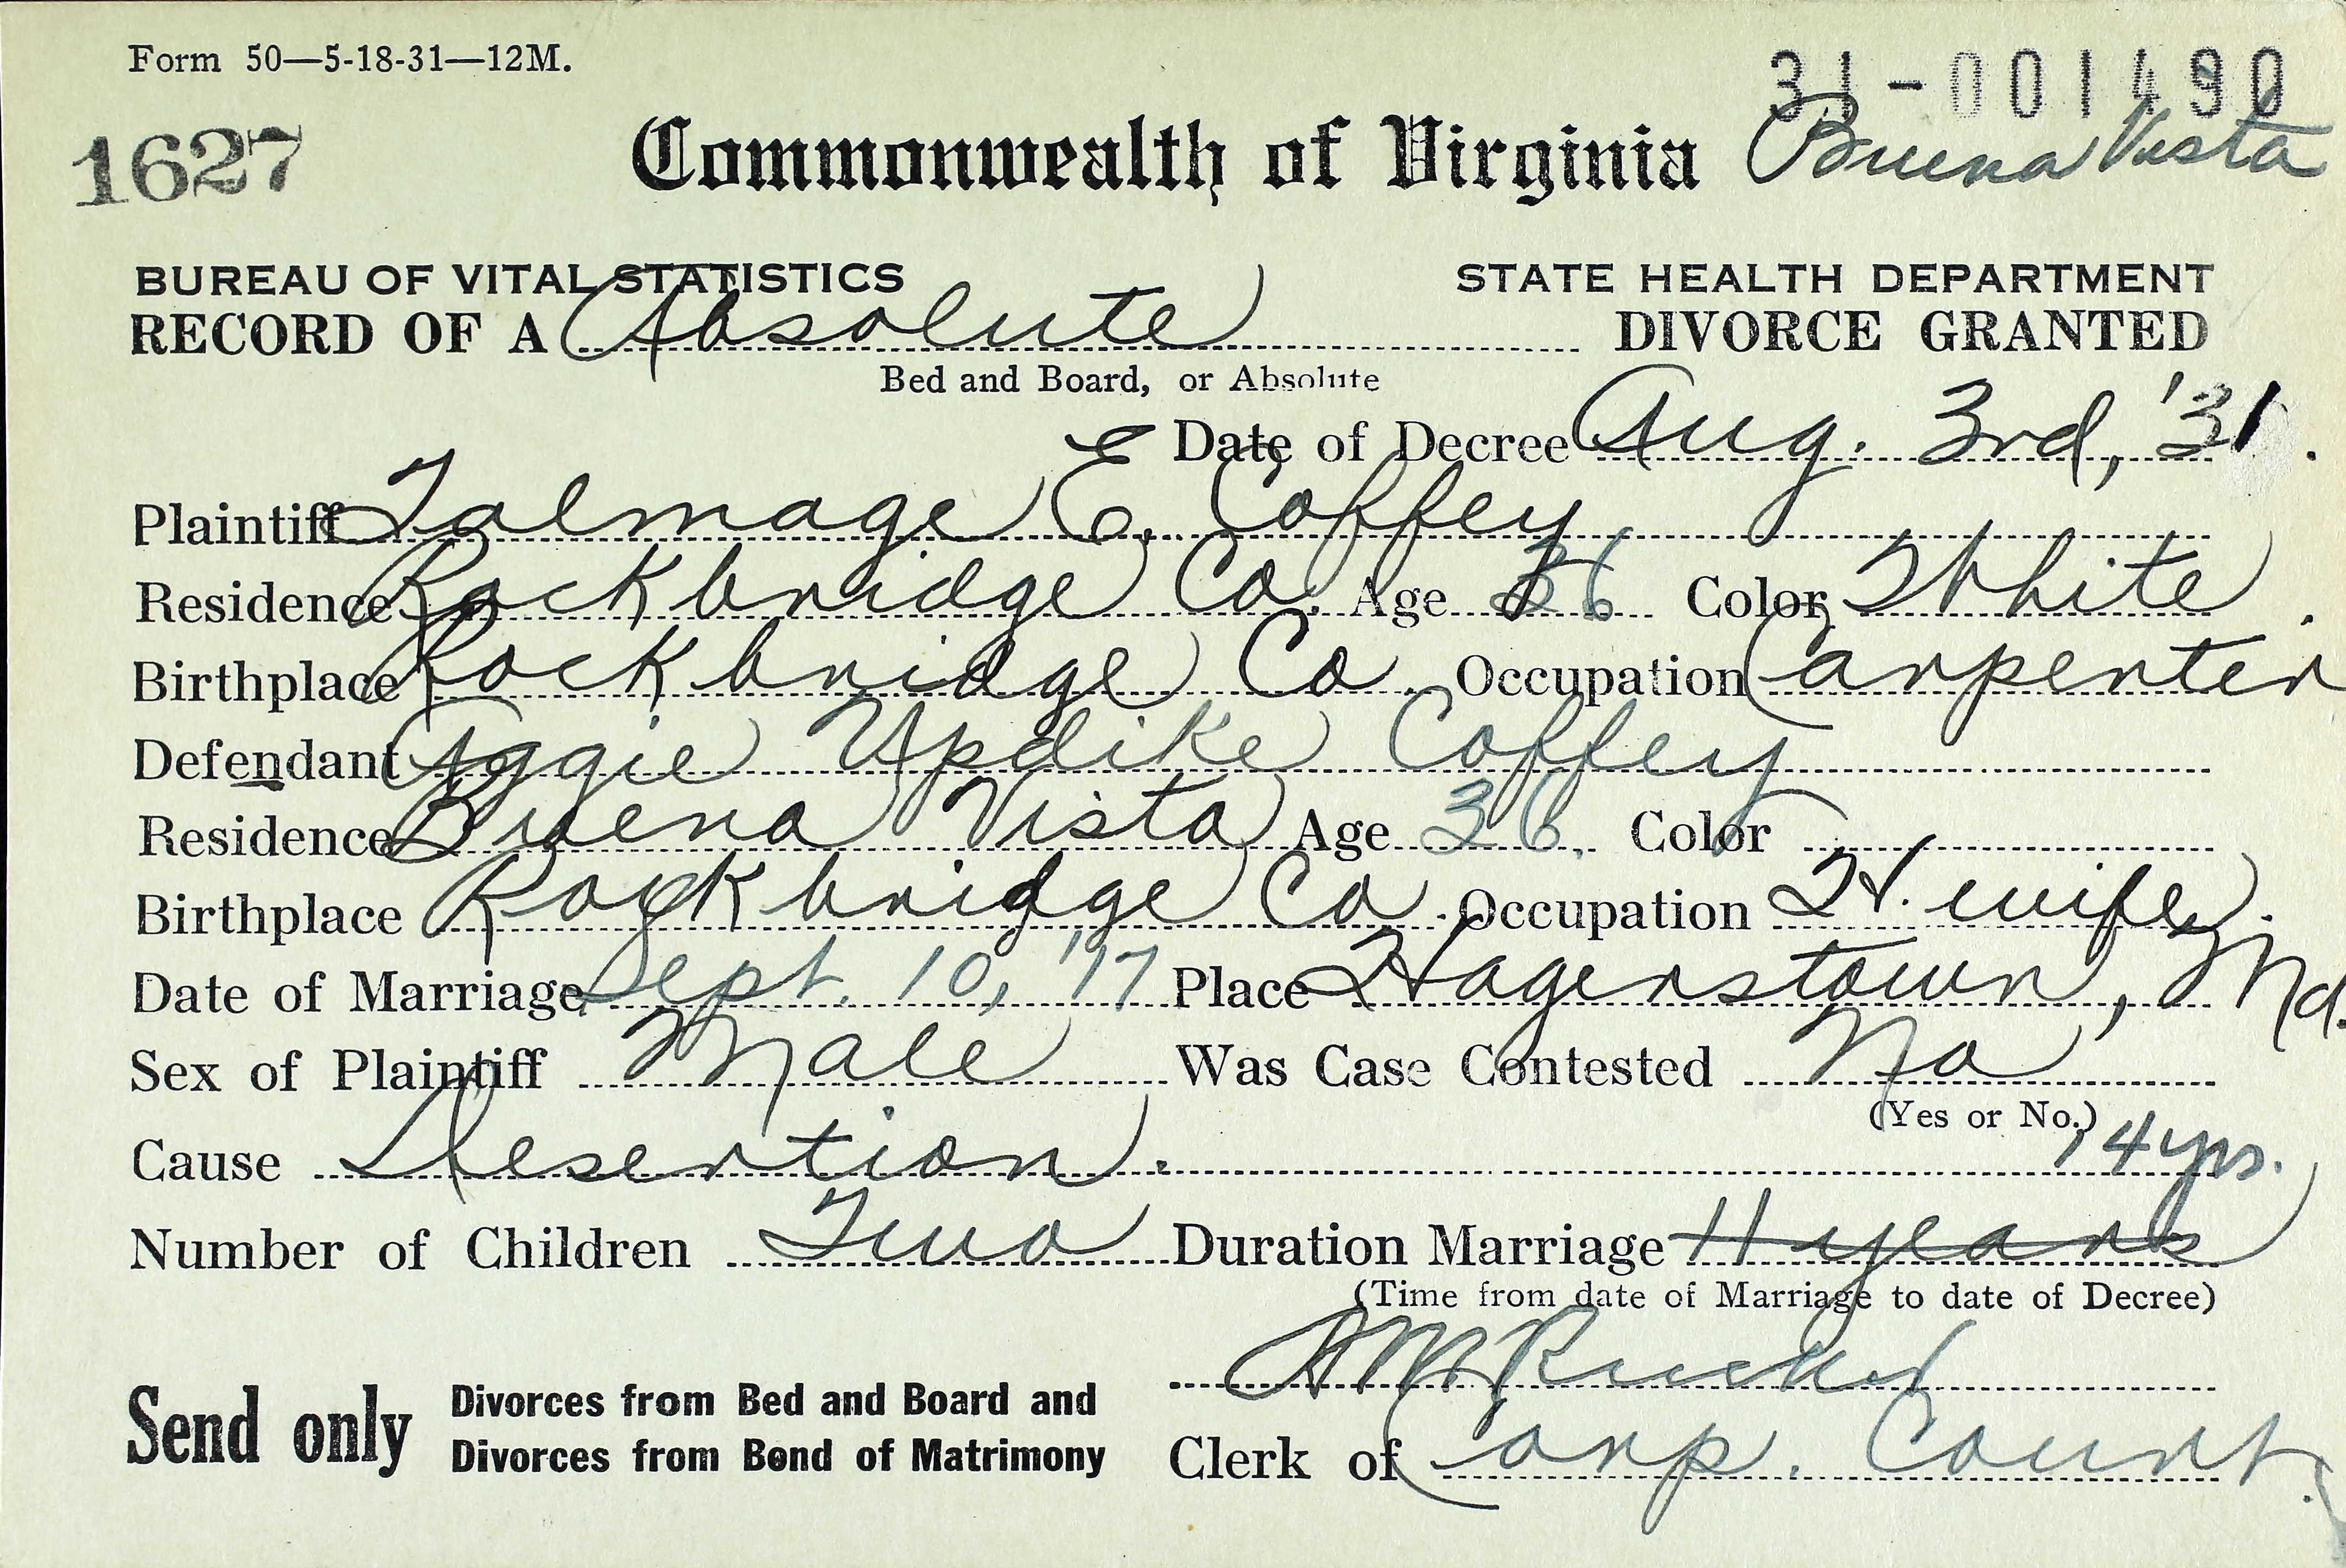 Form 50—5-18-31—12M.
31-001490
1627
Commonwealth of Virginia Buena Vista
BUREAU OF VITAL STATISTICS STATE HEALTH DEPARTMENT
RECORD OF A Absolute DIVORCE GRANTED
Bed and Board, or Absolute
Date of Decree Aug. 3rd, '31.
Plaintiff Talmage E. Coffey
Residence Rockbridge Co. Age 36 Color White.
Birthplace Rockbridge Co. Occupation Carpenter
Defendant Aggie Updike Coffey
Residence Buena Vista Age 36. Color
Birthplace Rockbridge Co. Occupation H. wife.
Date of Marriage Sept. 10, '17 Place Hagerstown, Md.
Sex of Plaintiff Male Was Case Contested No
(Yes or No.)
Cause Desertion. 14 yrs.
Number of Children Two Duration Marriage 11 years
(Time from date of Marriage to date of Decree)
Send only Divorces from Bed and Board and
Divorces from Bond of Matrimony
Clerk of Corp. Court.